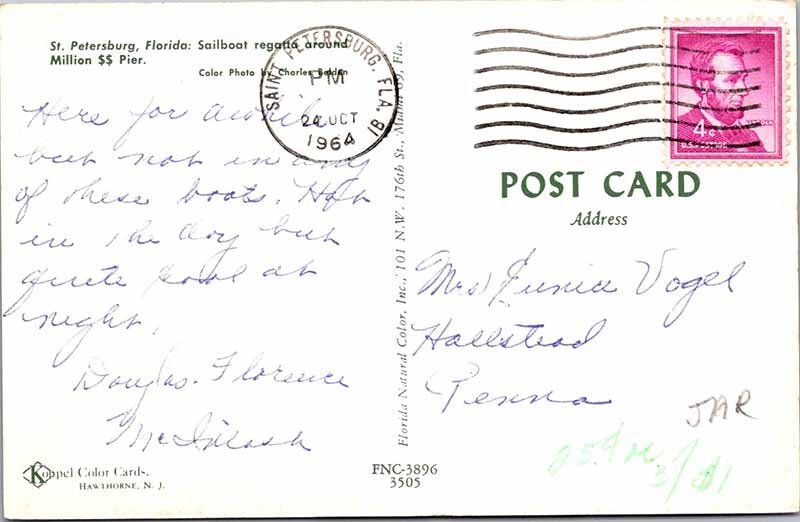 St. Petersburg, Florida: Sailboat regatta around
Million $$ Pier.
Color Photo by Charles Belden
Here for awhile
but not in any
of these boats. Hot
in the day but
quite cool at
night.
Douglas. Florence
McIntosh
Koppel Color Cards.
HAWTHORNE, N. J.
SAINT PETERSBURG, FLA. 81
PM
24 OCT
1964
Florida Natural Color, Inc., 101 N.W. 176th St., Miami 69, Fla.
FNC-3896
3505
4¢
LINCOLN
U.S. POSTAGE
POST CARD
Address
Mrs Eunice Vogel
Hallstead
Penna
JAR
25¢
3/$1